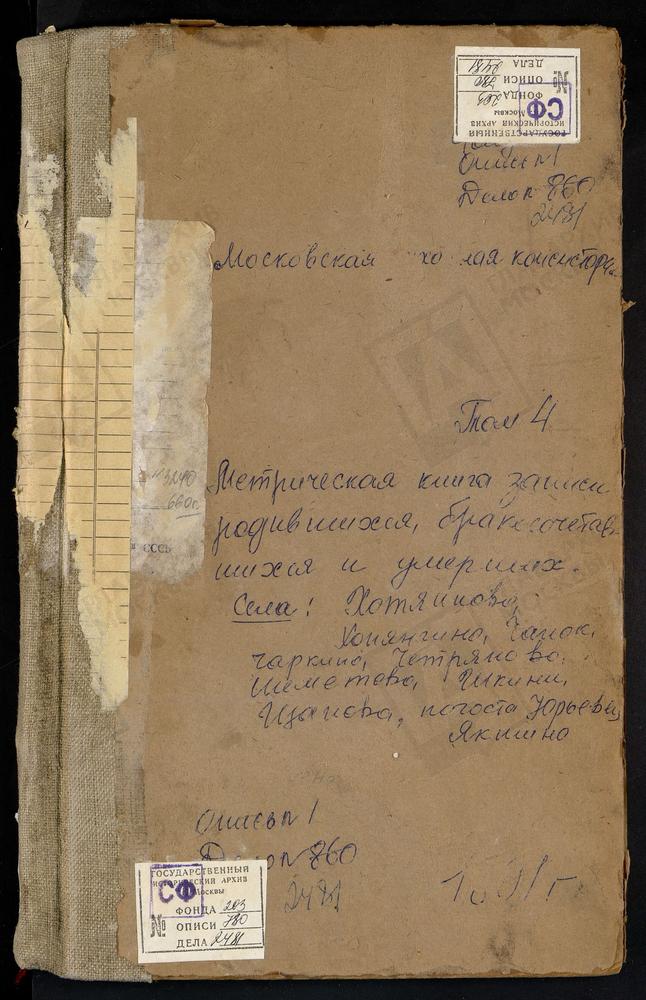 ГОСУДАРСТВЕННЫЙ
ИСТОРИЧЕСКИЙ АРХИВ
Москвы
СФ
ФОНДА 203
№ ОПИСИ 780
ДЕЛА 2481
Опись n 1
Дело n 860
2481
Московская хо ная консистори
Том 4
Метрическая книга записи
родившихся, бракосочетав
шихся и умерших.
Села: Хотяиново,
Чаркино, Четряково,
Шеметова,
погоста Юрьевец
Якшино
660г.
СССР
Опись n 1
Дело n 860
2481
ГОСУДАРСТВЕННЫЙ
ИСТОРИЧЕСКИЙ АРХИВ
Москвы
СФ
ФОНДА 203
№ ОПИСИ 780
ДЕЛА 2481